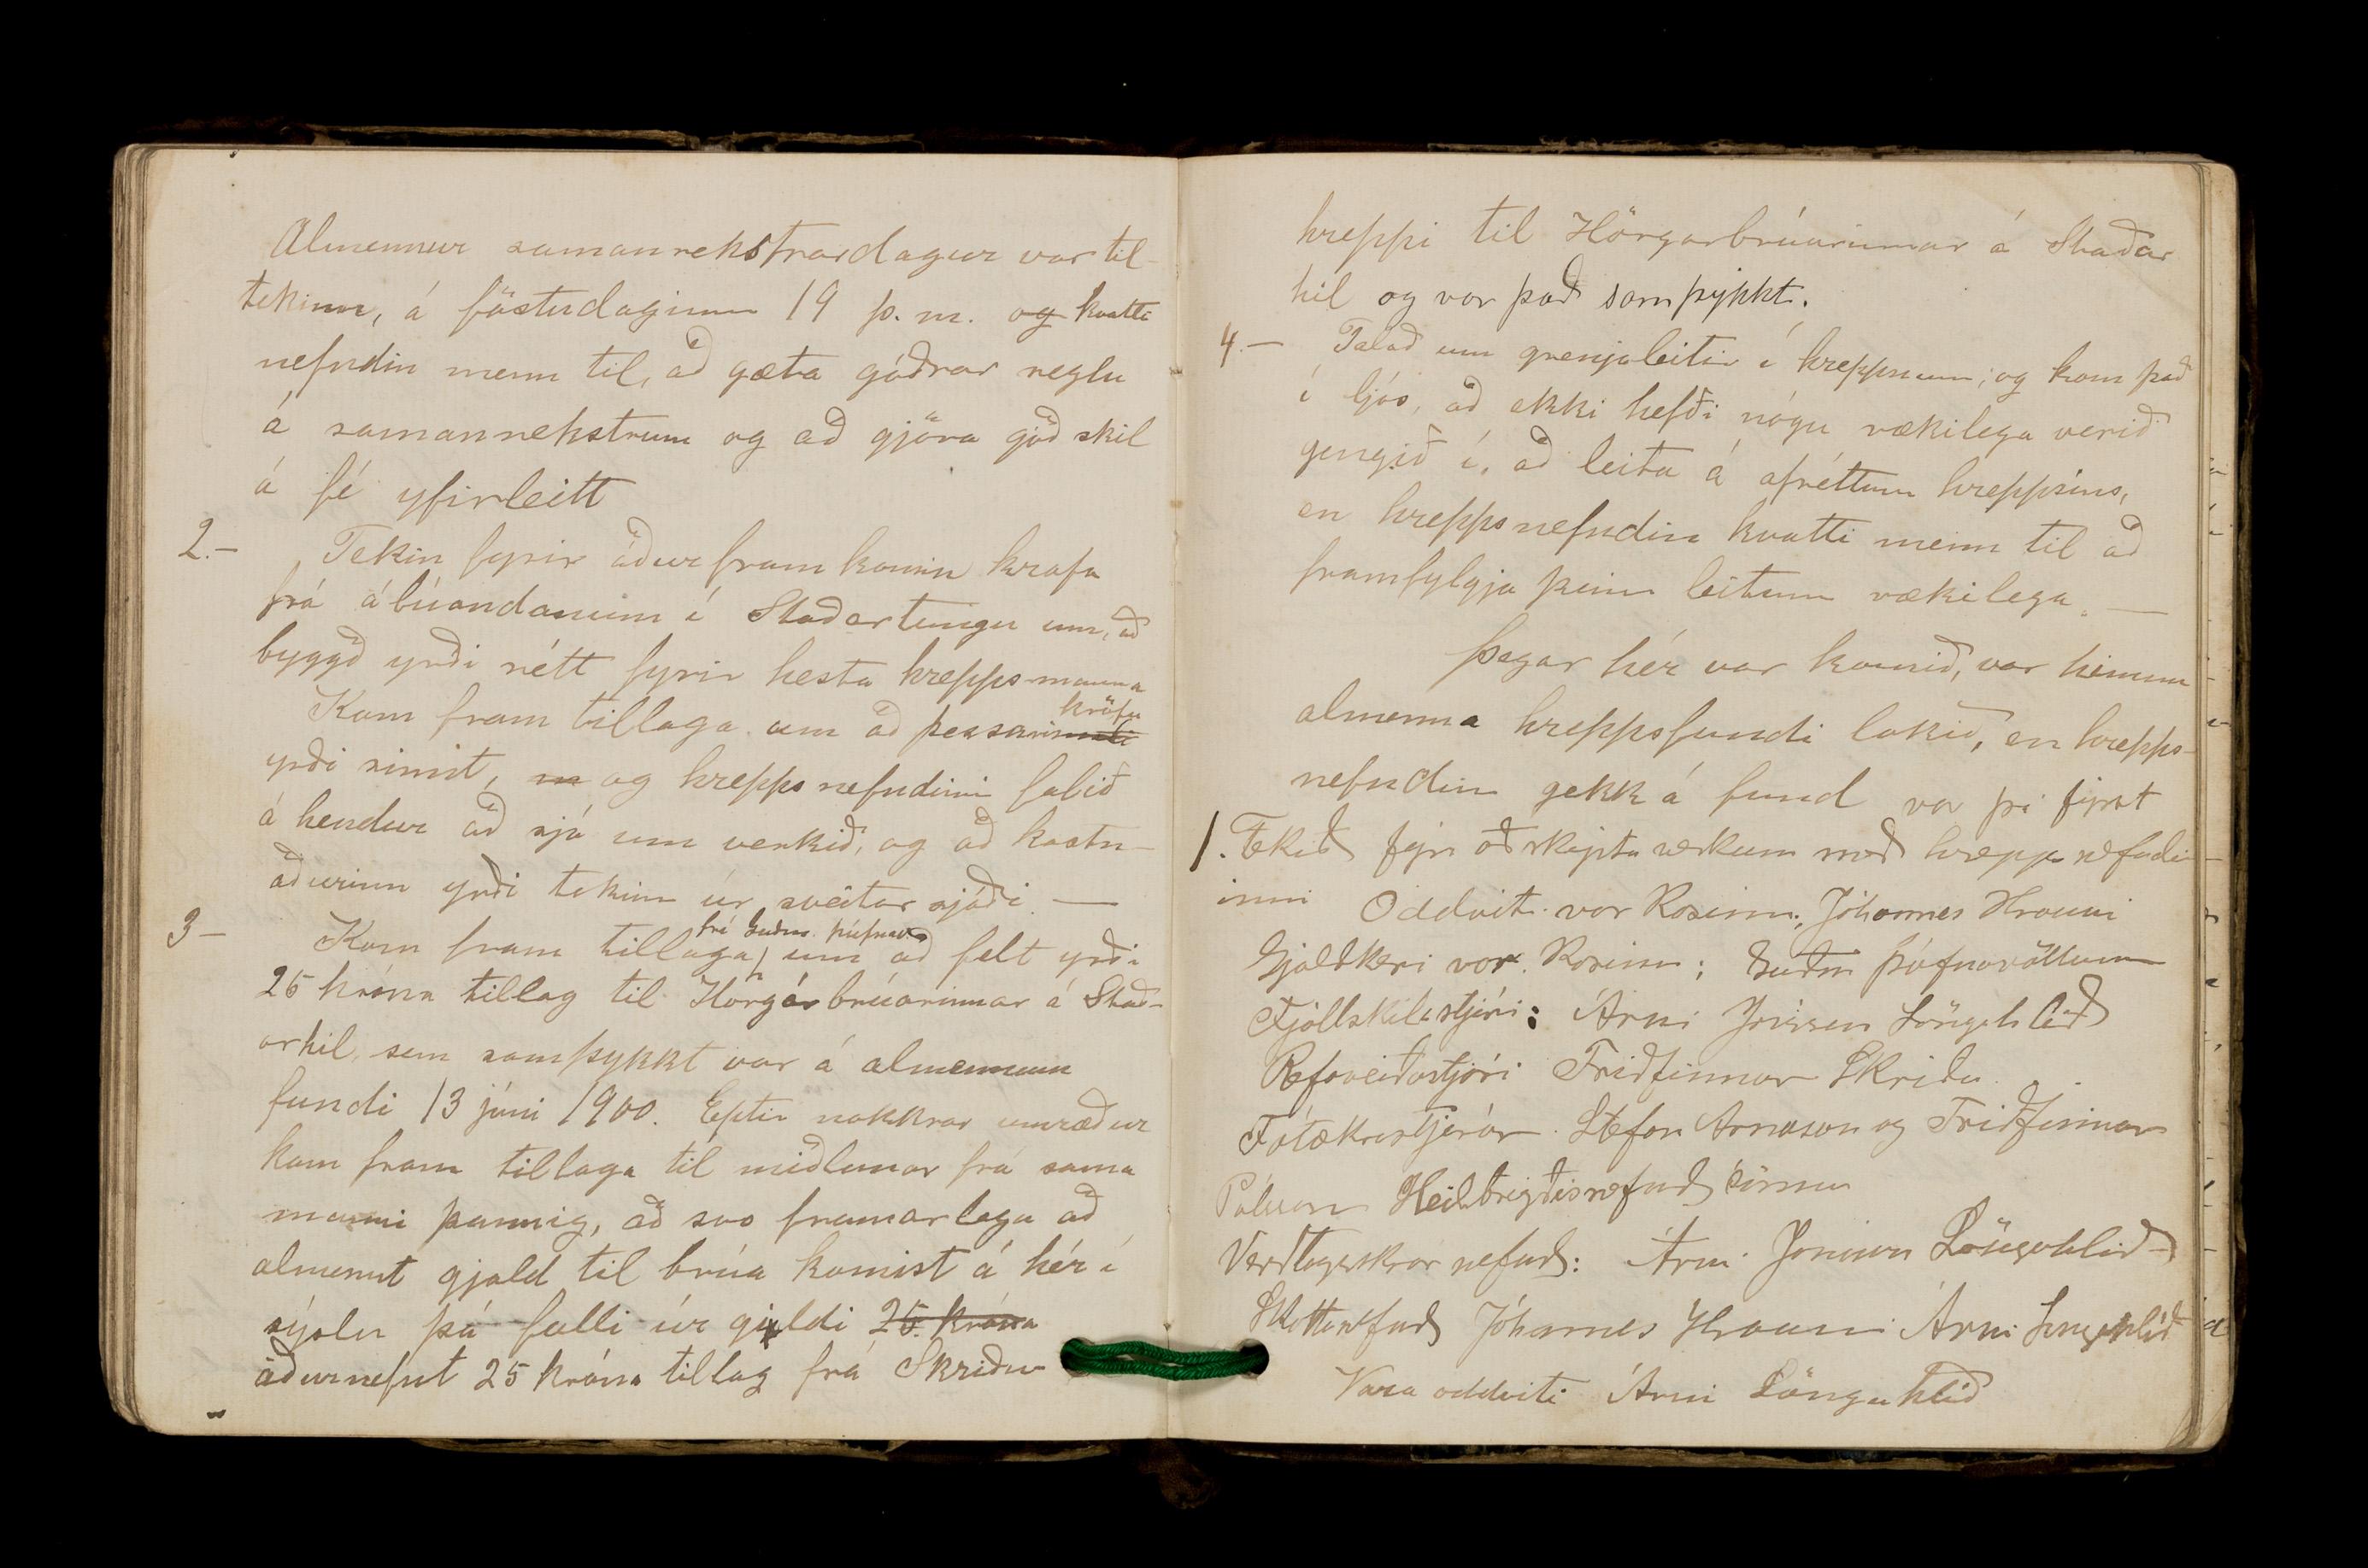 Almennur samanrekstrardagur var til-
tekinn, á föstudaginn 19 þ.m. og kvatti
nefndin menn til, að gæta góðrar reglu
á samanrekstrum og að gjöra góð skil
á fé yfirleitt
2.- Tekin fyrir áður fram komin krafa
frá ábúandanum í Staðartungu um, að
byggð yrði rétt fyrir hesta hreppsmanna
Kom fram tillaga um að þessari kröfu
yrði sinnt, og hreppsnefndinni falið
á hendur að sjá um verkið, og að kostn-
aðurinn yrði tekinn úr sveitarsjóði —
3- Kom fram tillaga frá Guðm. Þúfnav. um að felt yrði
25 króna tillag til Hörgárbrúarinnar á Stað-
arhil, sem samþykkt var á almennum
fundi 13 júni 1900. Eptir nokkrar umræður
kom fram tillaga til miðlunar frá sama
manni þannig, að svo framarlega að
almennt gjald til brúa komist á hér í
sýslu þá falli úr gildi 25 króna
áðurnefnt 25 króna tillag frá Skriðu-
hreppi til Hörgárbrúarinnar á Staðar
hil og var það samþykkt.
4.- Talað um grenjaleitir í hreppnum; og kom það
í ljós, að ekki hefði nógu rækilega verið
gengið í, að leita á afréttum hreppsins,
en hreppsnefndin kvatti menn til að
framfylgja þeim leitum rækilega. —
Þegar hér var komið, var hinum
almenna hreppsfundi lokið, en hrepps-
nefndin gekk á fund var þá fyrst
1. Tekið fyrir að skipta verkum með hrepps nefnd
inni Oddviti var Kosinn; Jóhannes Hrauni
Gjaldkeri var Kosinn; Guðm Þúfnavöllum
Fjallskilastjóri: Árni Jónsson Lönguhlíð
Refaveiðastjóri Friðfinnur Skriðu
Fátækrastjórar Stefan Arnason og Friðfinnur
Pálsson Heilbrigðisnefnd sömu
Verðlagsskrár nefnd: Árni Jónsson Lönguhlíð
Skattanefnd Jóhannes Hrauni Árni Lönguhlíð
Vara oddviti Árni Lönguhlíð